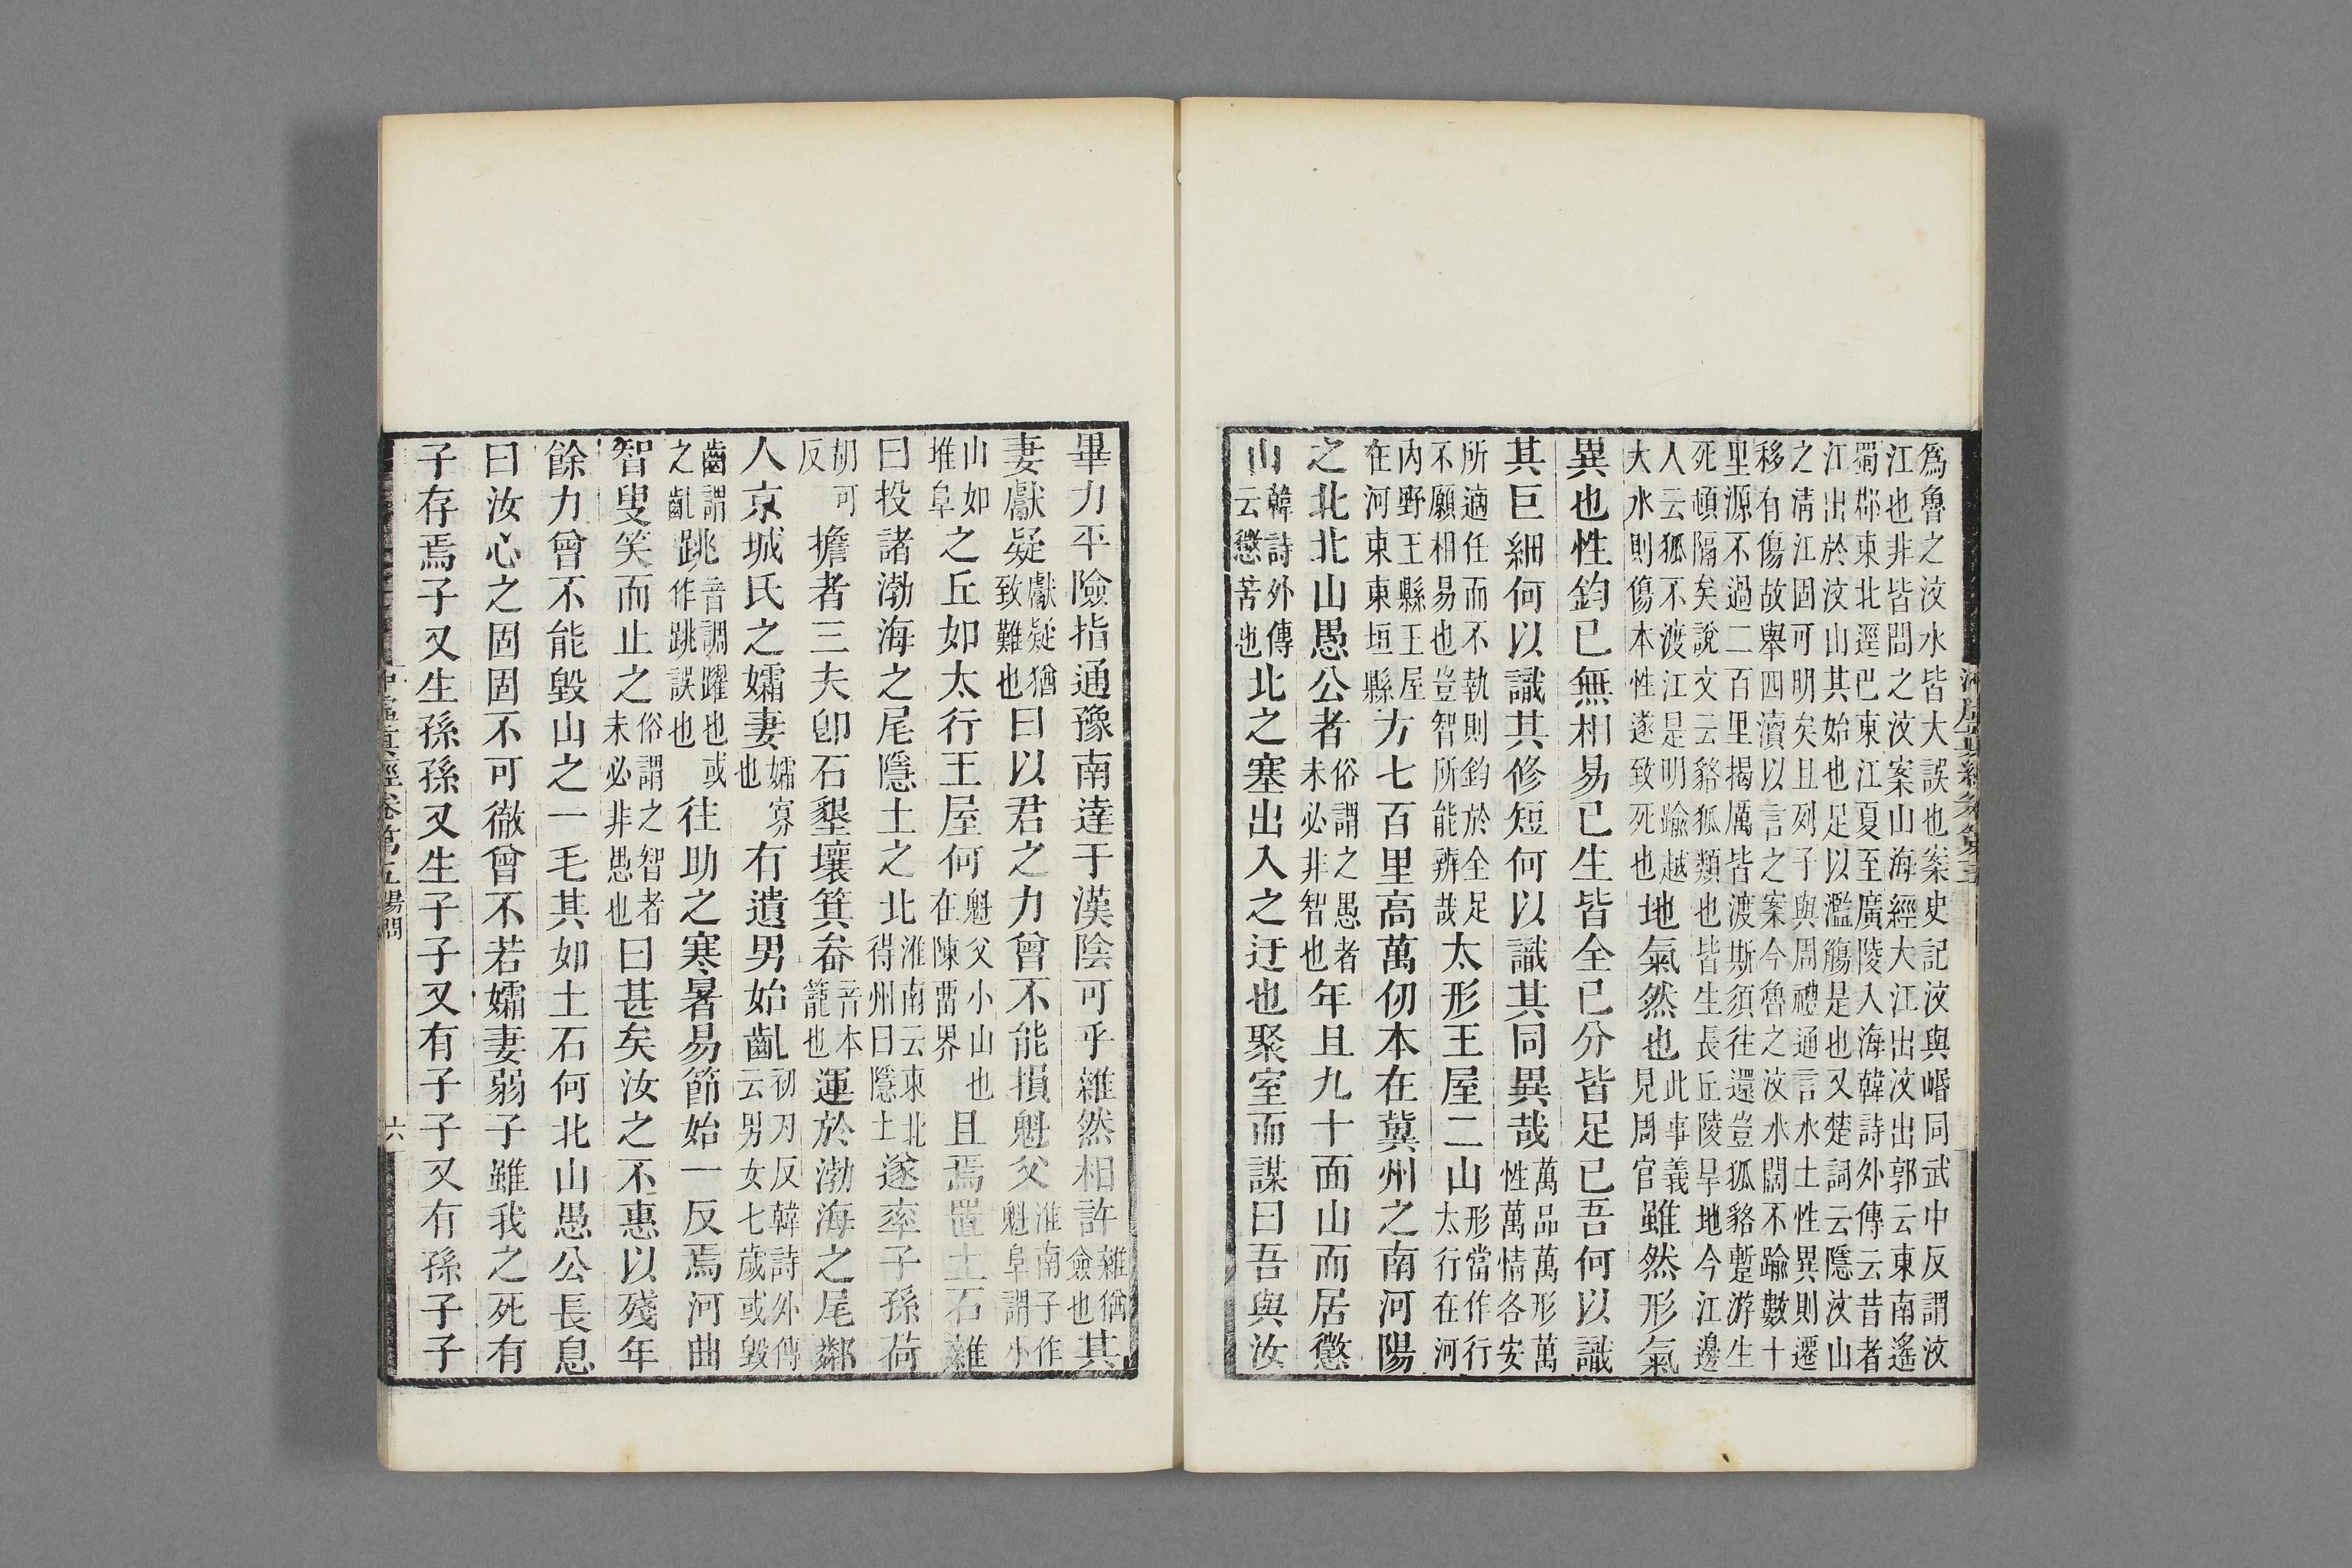 爲魯之汶水皆大誤也案史記汶與㟭同武中反謂汶
江也非皆問之汶案山海經大江出汶出郭云東南遙
蜀郡東北逕巴東江夏至廣陵入海韓詩外傳云昔者
江出於汶山其始也足以濫觴是也又楚詞云隱汶山
之淸江固可明矣且列子與周禮通言水土性異則遷
移有傷故舉四瀆以言之案今魯之汶水闊不踰數十
里源不過二百里揭厲皆渡斯須往還豈狐貉暫游生
死頓隔矣說文云貉狐類也皆生長丘陵旱地今江邊
人云狐不渡江是明踰越大水則傷本性遂致死也地氣然也此事義見周官雖然形氣
異也性鈞已無相易已生皆全已分皆足已吾何以識
其巨細何以識其修短何以識其同異哉萬品萬形萬性萬情各安
所適任而不執則鈞於全足不願相易也豈智所能辨哉太形王屋二山形當作行太行在河
內野王縣王屋在河東東垣縣方七百里高萬仞本在冀州之南河陽
之北北山愚公者俗謂之愚者未必非智也年且九十面山而居懲
山韓詩外傳云懲苦也北之塞出入之迂也聚室而謀曰吾與汝
畢力平險指通豫南達于漢陰可乎雜然相許雜猶僉也其
妻獻疑獻疑猶致難也曰以君之力曾不能損魁父淮南子作魁阜謂小
山如堆阜之丘如太行王屋何魁父小山也在陳曹界且焉置土石雜
曰投諸渤海之尾隱土之北淮南云東北得州曰隱土遂率子孫荷
胡可反擔者三夫卽石墾壤箕畚音本籠也運於渤海之尾鄰
人京城氏之孀妻孀寡也有遺男始齓初刃反韓詩外傳云男女七歲或毀
齒謂之齓跳音調躍也或作跳誤也往助之寒暑易節始一反焉河曲
智叟笑而止之俗謂之智者未必非愚也曰甚矣汝之不惠以殘年
餘力曾不能毀山之一毛其如土石何北山愚公長息
曰汝心之固固不可徹曾不若孀妻弱子雖我之死有
子存焉子又生孫孫又生子子又有子子又有孫子子
沖虛眞經卷第五湯問 六